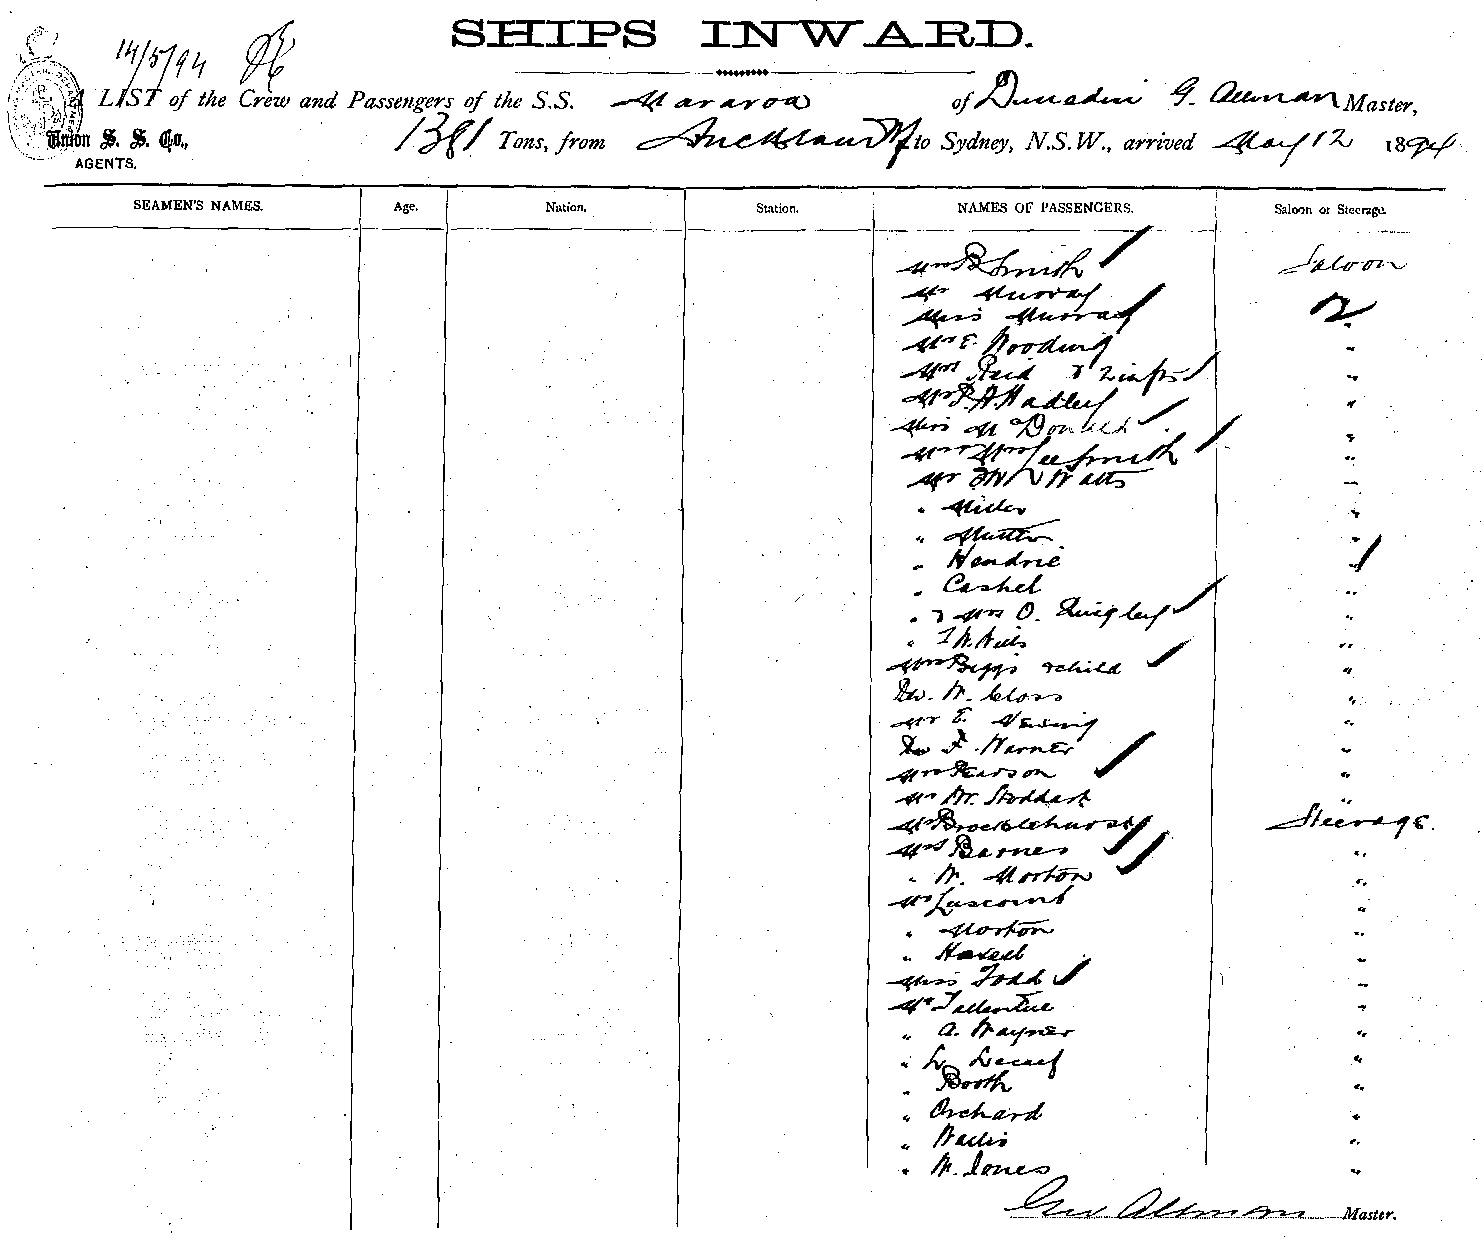 SHIPS INWARD.
14/5/94
A LIST of the Crew and Passengers of the S.S. Mararoa of Dunedin G. Allman Master,
Union S. S. Co., 1381 Tons, from Auckland to Sydney, N.S.W., arrived May 12 1894
AGENTS.
SEAMEN'S NAMES. Age. Nation. Station. NAMES OF PASSENGERS. Saloon or Steerage.
Mrs B Smith Saloon
Mr Murray
Miss Murray 2
Mr E. Wooding "
Mrs Reid & "
Mr P. A. Hadley "
Miss McDonald "
Mr & Mrs Lee Smith "
Mr Watts "
" Miller "
" Mutter "
" Hendrie "
" Cashel "
" & Mrs O. Quigley "
" T W. Wills "
Mrs Biggs & child "
Dr. W. Closs "
Mr E. "
Dr F. Warner "
Mrs Pearson "
Mr Wr. Stoddart "
Mr Brocklehurst Steerage.
Mrs Barnes "
" W. Morton "
Mr Luscomb "
" Morton "
" "
Miss Todd "
Mr Tallentire "
" A. Wayner "
" L. "
" Booth "
" Orchard "
" Wallis "
" W. Jones "
Geo Allman Master.